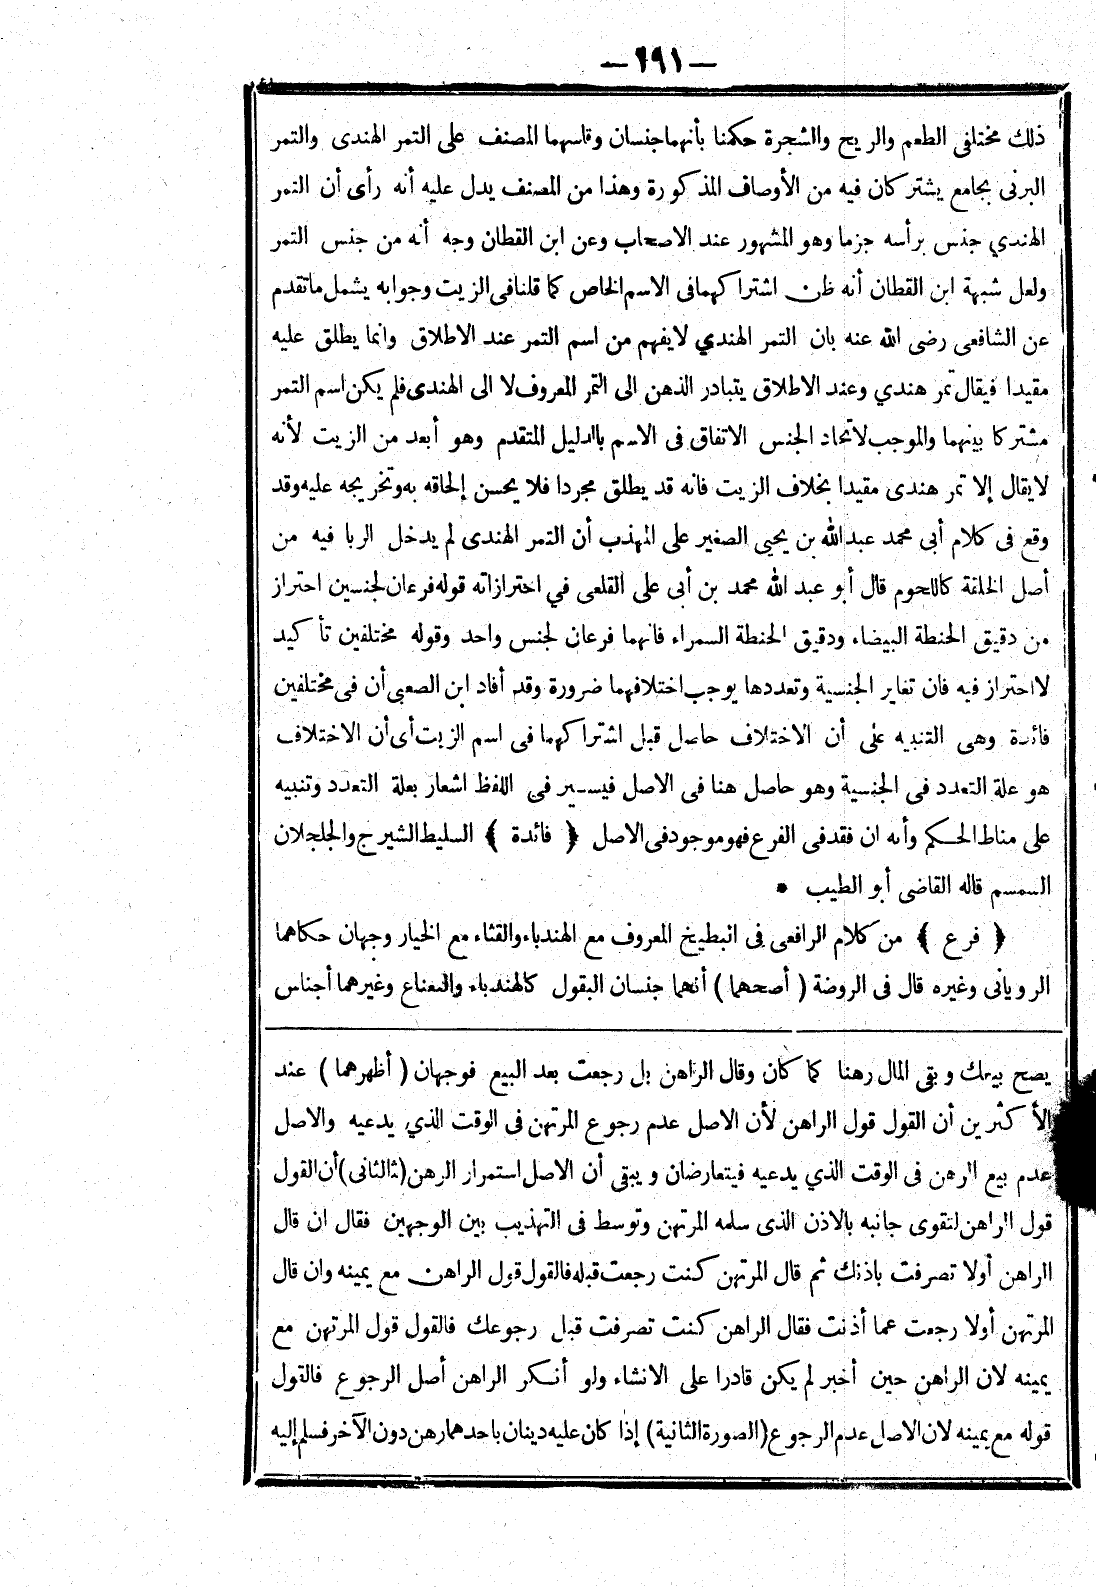 — ١٩١ —
ذلك مختلفى الطعم والريح والشجرة حكمنا بأنهما جنسان وقاسهما المصنف على التمر الهندى والتمر
البرنى بجامع يشتركان فيه من الأوصاف المذكورة وهذا من المصنف يدل عليه أنه رأى أن التمر
الهندي جنس برأسه جزما وهو المشهور عند الاصحاب وعن ابن القطان وجه أنه من جنس التمر
ولعل شبهة ابن القطان أنه ظن اشتراكهما فى الاسم الخاص كما قلنا فى الزيت وجوابه يشمل ماتقدم
عن الشافعى رضى الله عنه بان التمر الهندي لايفهم من اسم التمر عند الاطلاق وانما يطلق عليه
مقيدا فيقال تمر هندي وعند الاطلاق يتبادر الذهن الى التمر المعروف لا الى الهندى فلم يكن اسم التمر
مشتركا بينهما والموجب لاتحاد الجنس الاتفاق فى الاسم بالدليل المتقدم وهو أبعد من الزيت لأنه
لايقال إلا تمر هندى مقيدا بخلاف الزيت فانه قد يطلق مجردا فلا يحسن إلحاقه به وتخريجه عليه وقد
وقع فى كلام أبى محمد عبدالله بن يحيى الصغير على المهذب أن التمر الهندى لم يدخل الربا فيه من
أصل الخلقة كاللحوم قال أبو عبد الله محمد بن أبى على القلعى في احترازاته قوله فرعان لجنسين احتراز
من دقيق الحنطة البيضاء ودقيق الحنطة السمراء فانهما فرعان لجنس واحد وقوله مختلفين تأكيد
لااحتراز فيه فان تغاير الجنسية وتعددها يوجب اختلافهما ضرورة وقد أفاد ابن الصعبى أن فى مختلفين
فائدة وهى التنبيه على أن الاختلاف حاصل قبل اشتراكهما فى اسم الزيت أى أن الاختلاف
هو علة التعدد فى الجنسية وهو حاصل هنا فى الاصل فيسير فى اللفظ اشعار بعلة التعدد وتنبيه
على مناط الحكم وأنه ان فقد فى الفرع فهو موجود فى الاصل ﴿ فائدة ﴾ السليط الشيرج والجلجلان
السمسم قاله القاضى أبو الطيب *
﴿ فرع ﴾ من كلام الرافعى فى البطيخ المعروف مع الهندباء والقثاء مع الخيار وجهان حكاهما
الرويانى وغيره قال فى الروضة ( أصحهما ) أنهما جنسان البقول كالهندباء والنعناع وغيرهما أجناس
يصح بيعك وبقى المال رهنا كما كان وقال الراهن بل رجعت بعد البيع فوجهان ( أظهرهما ) عند
الأكثرين أن القول قول الراهن لأن الاصل عدم رجوع المرتهن فى الوقت الذي يدعيه والاصل
عدم بيع الرهن فى الوقت الذي يدعيه فيتعارضان ويبقى أن الاصل استمرار الرهن (ثالثانى) أن القول
قول الراهن لتقوى جانبه بالاذن الذى سلمه المرتهن وتوسط فى التهذيب بين الوجهين فقال ان قال
الراهن أولا تصرفت باذنك ثم قال المرتهن كنت رجعت قبله فالقول قول الراهن مع يمينه وان قال
المرتهن أولا رجعت عما أذنت فقال الراهن كنت تصرفت قبل رجوعك فالقول قول المرتهن مع
يمينه لان الراهن حين أخبر لم يكن قادرا على الانشاء ولو أنكر الراهن أصل الرجوع فالقول
قوله مع يمينه لان الاصل عدم الرجوع (الصورة الثانية) إذا كان عليه دينان باحدهما رهن دون الآخر فسلم إليه